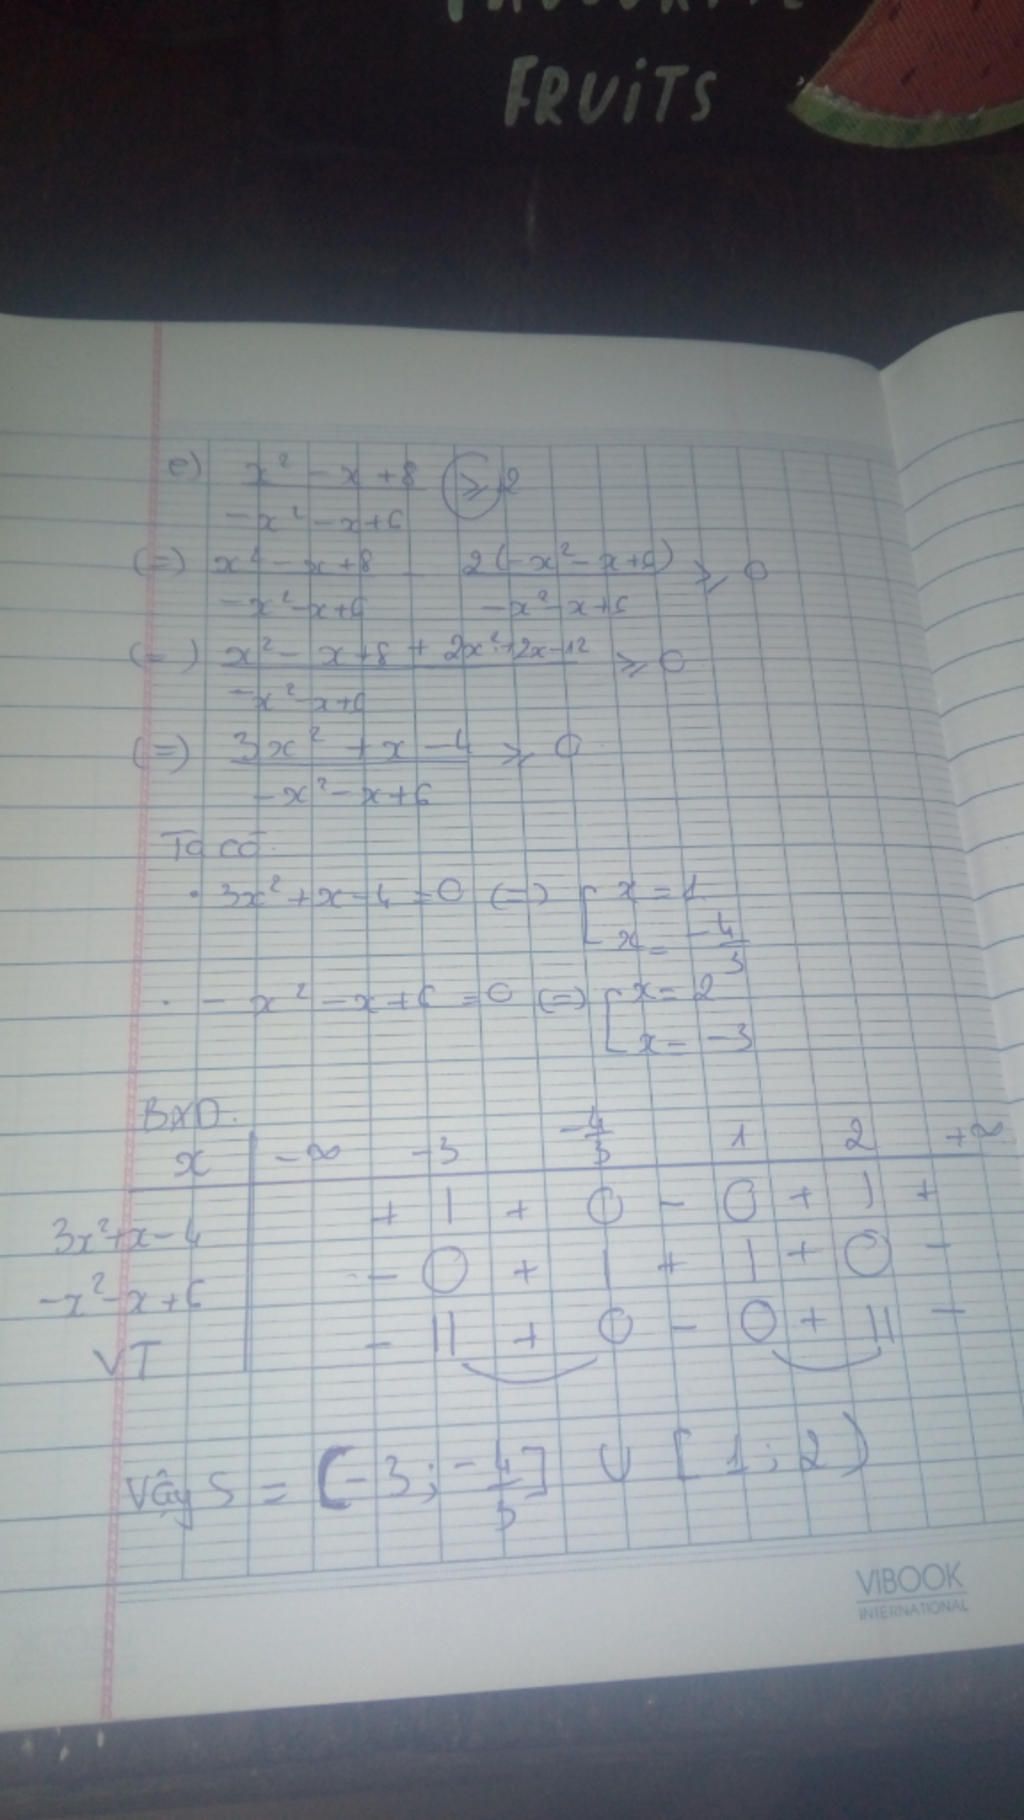 FRUiTS
e) x² - x + 8 / -x² - x + 6 ≥ 2
(=) x² - x + 8 / -x² - x + 6 - 2(-x² - x + 6) / -x² - x + 6 ≥ 0
(=) x² - x + 8 + 2x² + 2x - 12 / -x² - x + 6 ≥ 0
(=) 3x² + x - 4 / -x² - x + 6 ≥ 0
Ta có
• 3x² + x - 4 = 0 (=) [ x = 1
x = -4/3
• -x² - x + 6 = 0 (=) [ x = 2
x = -3
BXD.
x | -∞ -3 -4/3 1 2 +∞
3x² + x - 4 | + | + 0 - 0 + | +
-x² - x + 6 | - 0 + | + | + 0 -
VT | - || + 0 - 0 + || -
Vậy S = (-3; -4/3] ∪ [1; 2)
VIBOOK
INTERNATIONAL